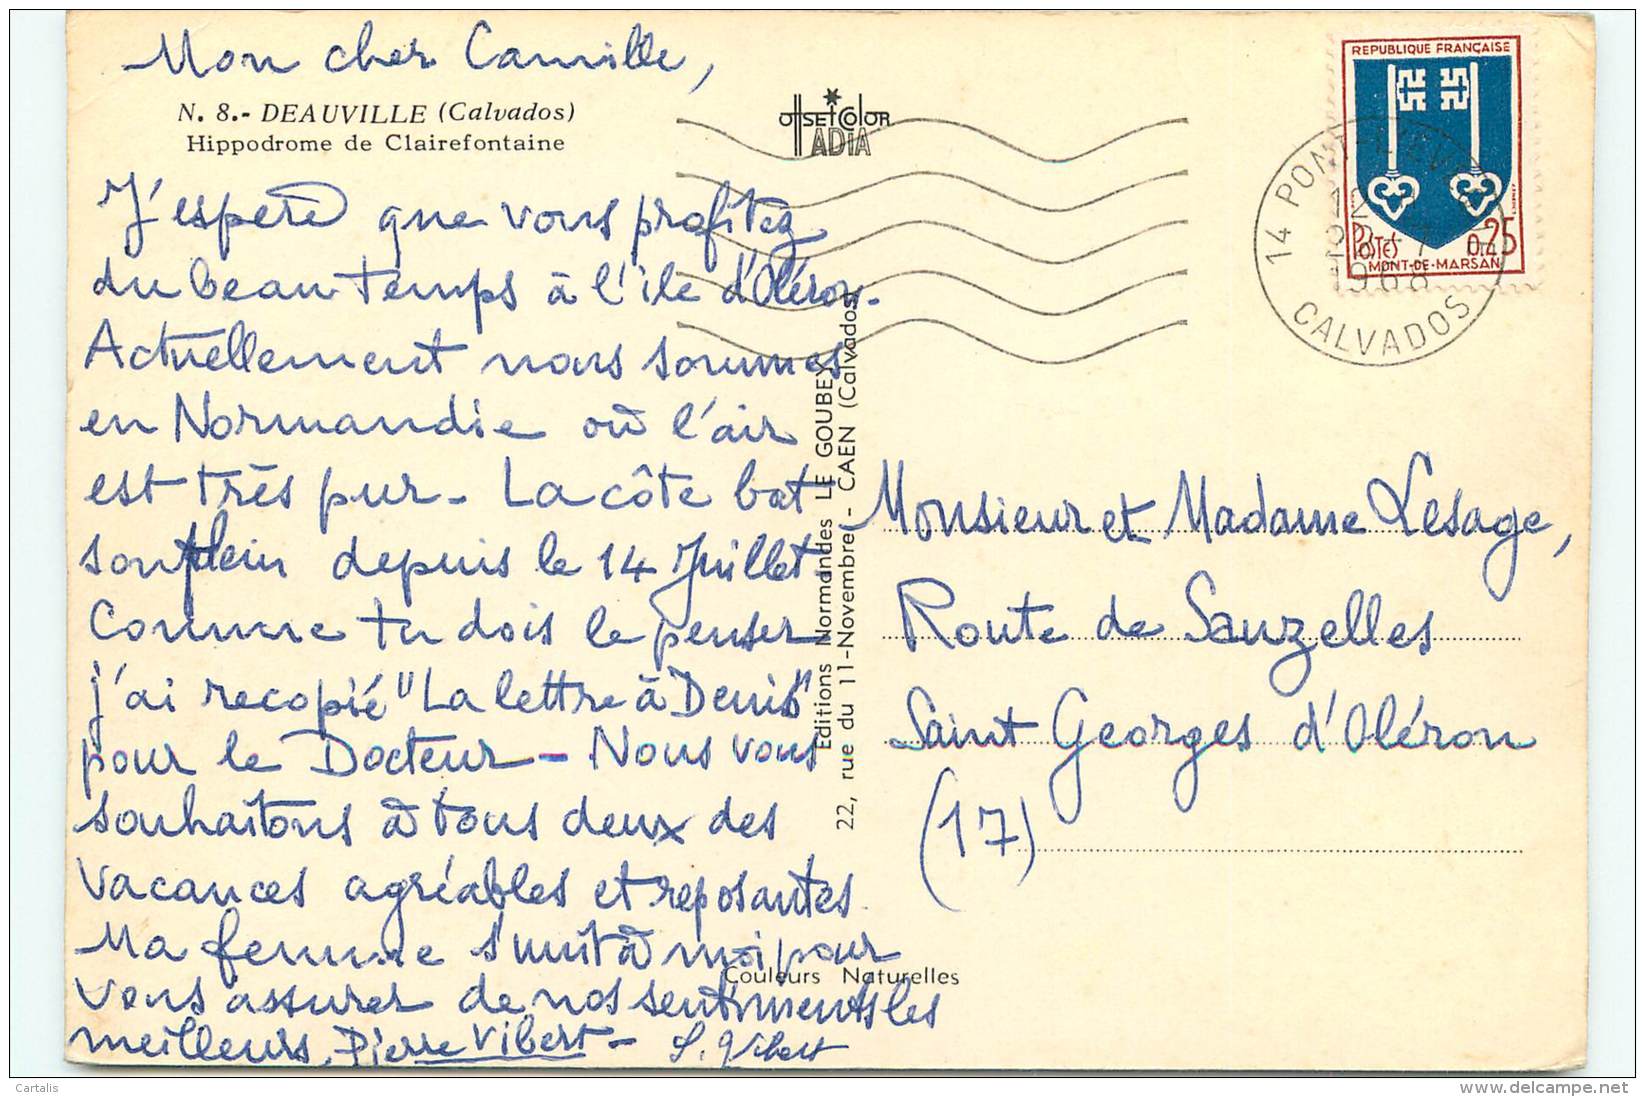 Mon cher Camille,
N. 8.- DEAUVILLE (Calvados)
Hippodrome de Clairefontaine
OffSEt COlOR
ADIA
J'espère que vous profitez
du beau temps à l'île d'Oléron.
Actuellement nous sommes
en Normandie où l'air
est très pur - La côte bat
son plein depuis le 14 Juillet -
Comme tu dois le penser
j'ai recopié "La lettre à Denis"
pour le Docteur - Nous vous
souhaitons à tous deux des
vacances agréables et reposantes
Ma femme s'unit à moi pour
vous assurer de nos sentiments les
meilleurs, Pierre Vibert - S. Vibert
Editions Normandes LE GOUBEY
22, rue du 11-Novembre - CAEN (Calvados)
Couleurs Naturelles
REPUBLIQUE FRANÇAISE
POSTES 0.25
MONT-DE-MARSAN
14 PONT-L'EV
12
22-7
1968
CALVADOS
Monsieur et Madame Lesage,
Route de Sauzelles
Saint Georges d'Oléron
(17)
Cartalis
www.delcampe.net